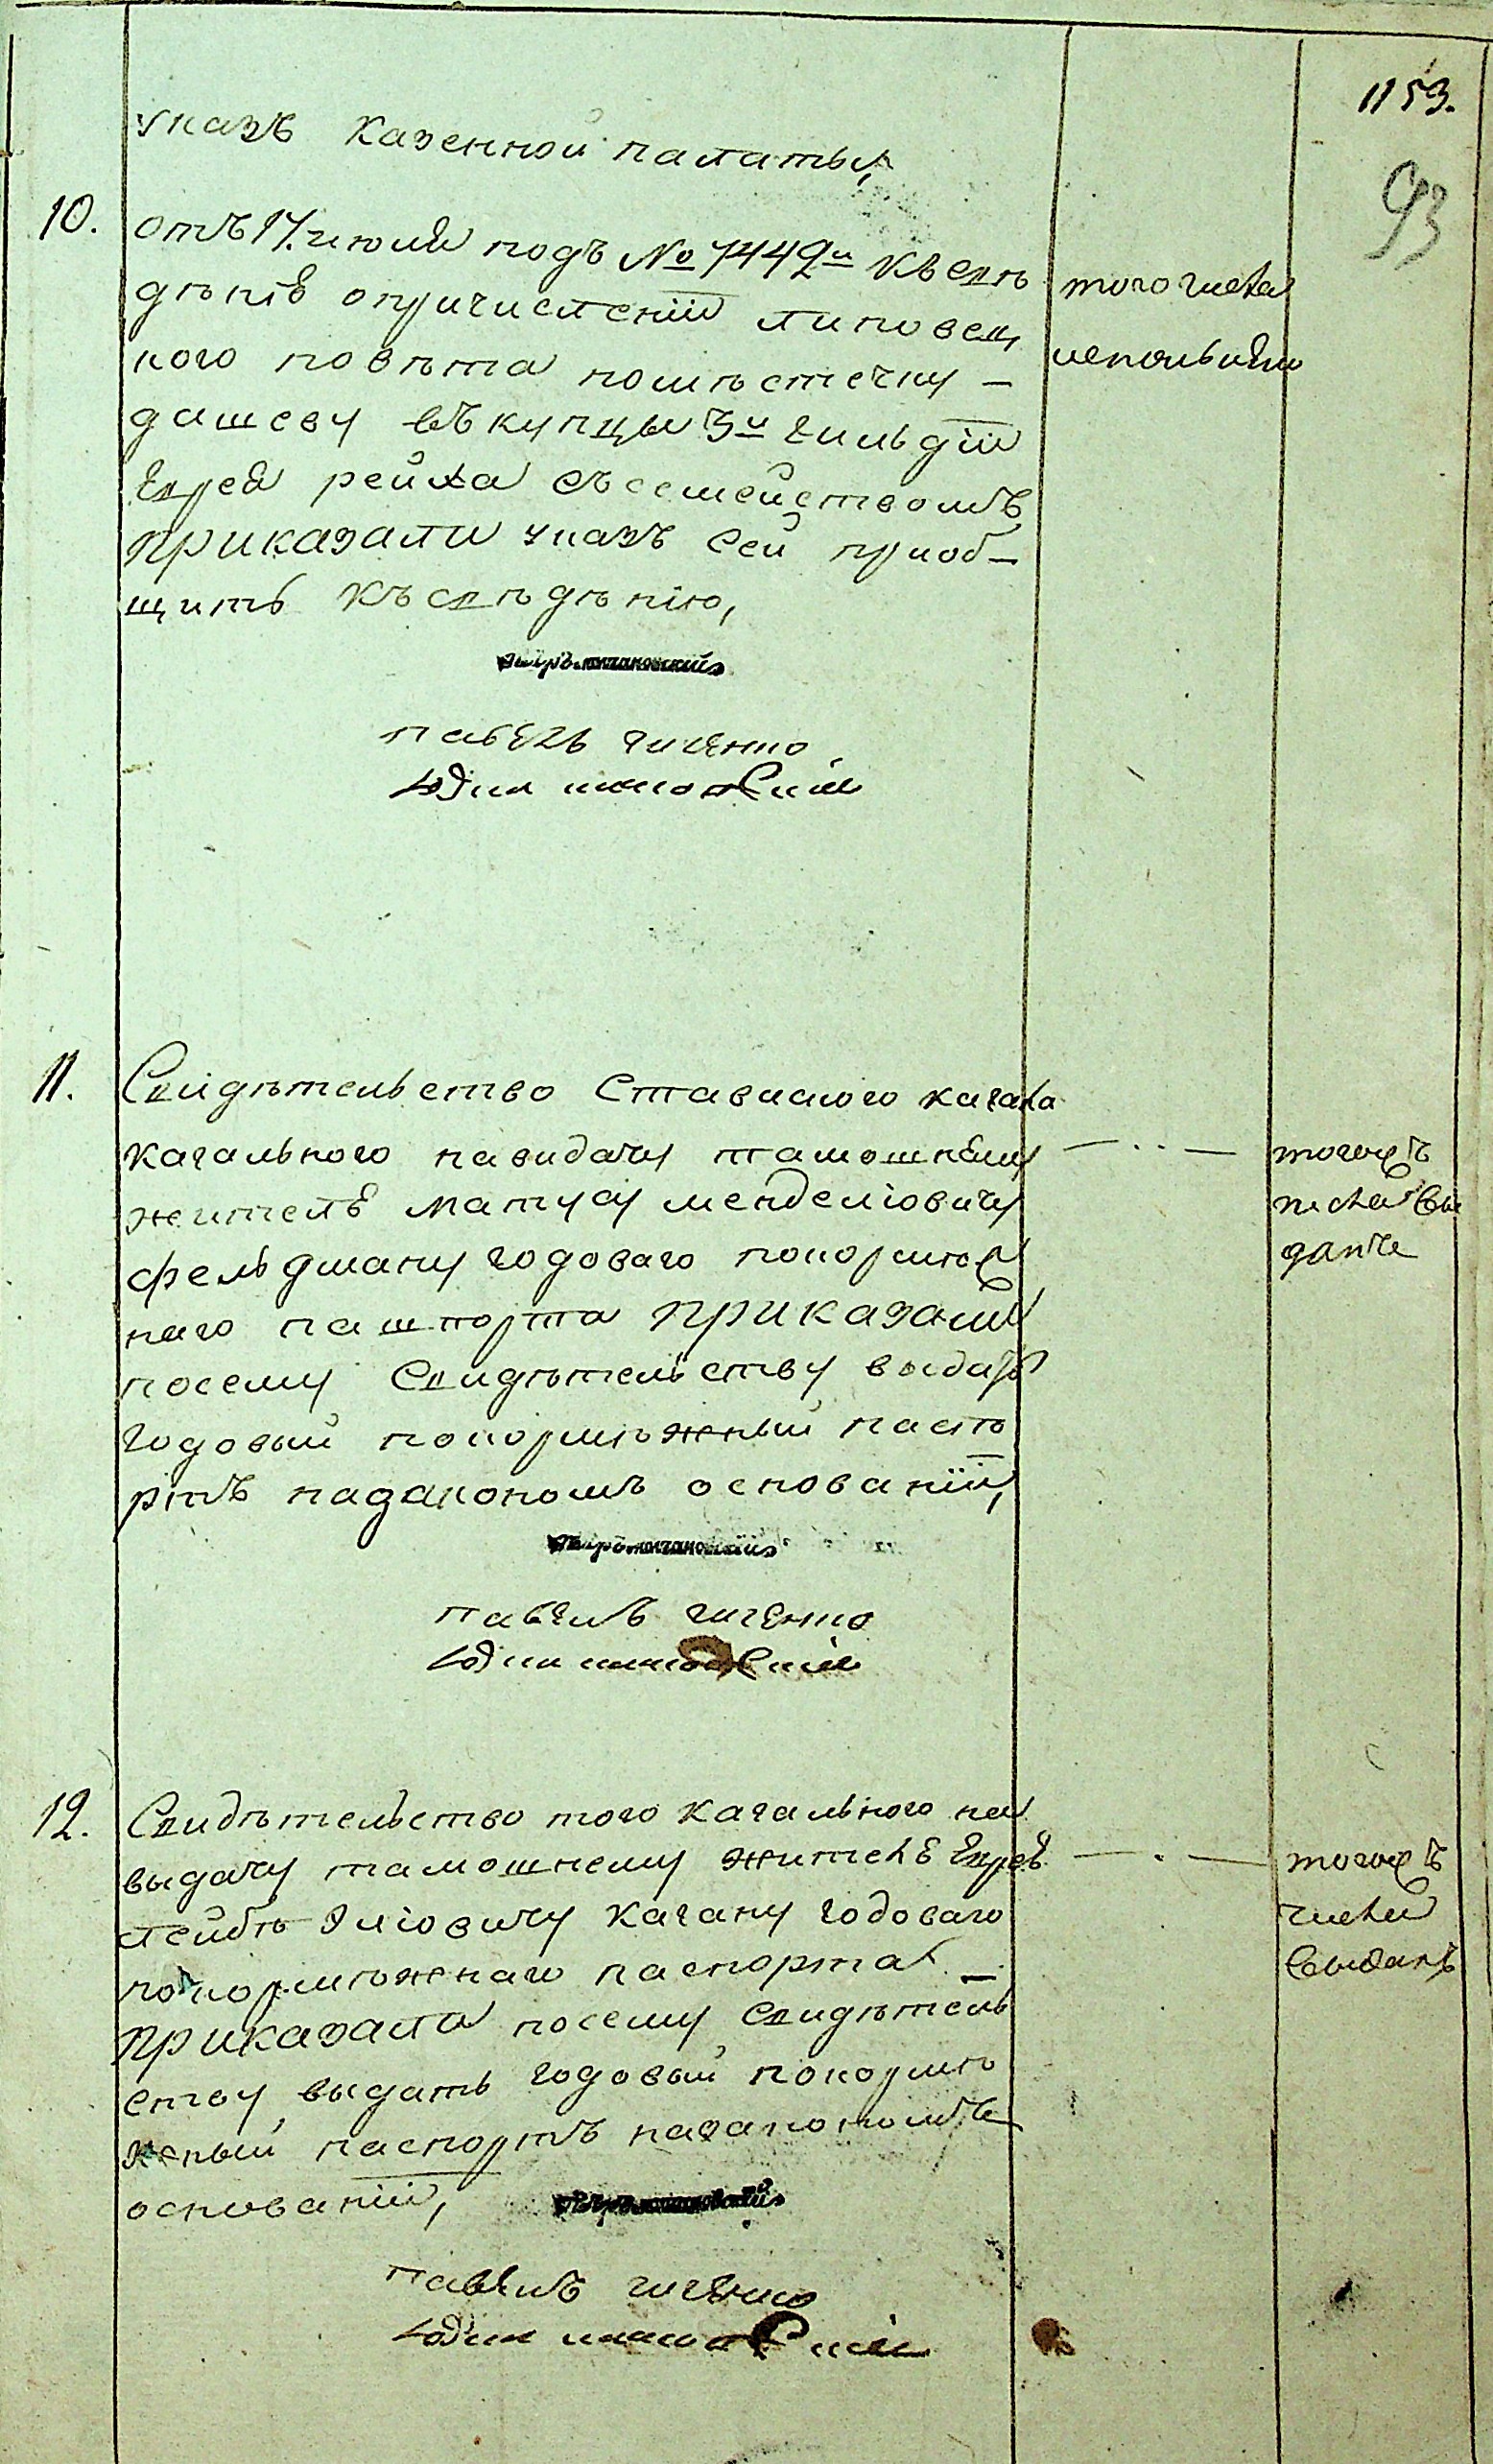 1153.
93
указъ казенной палаты,
10. отъ 17. июля подъ № 7449м къ свѣ
дѣнiѣ опричисленiи липовец
кого повѣта помѣстечку —
дашеву въ купцы 3й гильдiи
Еврея рейха съ семействомъ
приказали указъ сей приоб—
щить къ свѣдѣнiю,
того числа
исполнено
павелъ
11. Свидѣтельство Ставиского кагала
кагального навидачу тамошнему
жителѣ матусу менделiовичу
фельдману годоваго покормеж
наго пашпорта приказали
посему Свидѣтельству выдать
годовый покормѣжный паспо
ртъ назакономъ основанiи,
тогожъ
числа вы
данъ
павелъ
12. Свидѣтельство того кагального на
выдачу тамошнему жителѣ Еврею
лейбѣ Элiовичу кагану годоваго
покормѣжнаго паспорта —
приказали посему Свидѣтель
ству выдать годовый покормѣ
жный паспортъ назакономъ
основанiи,
тогожъ
числа
выданъ
павелъ